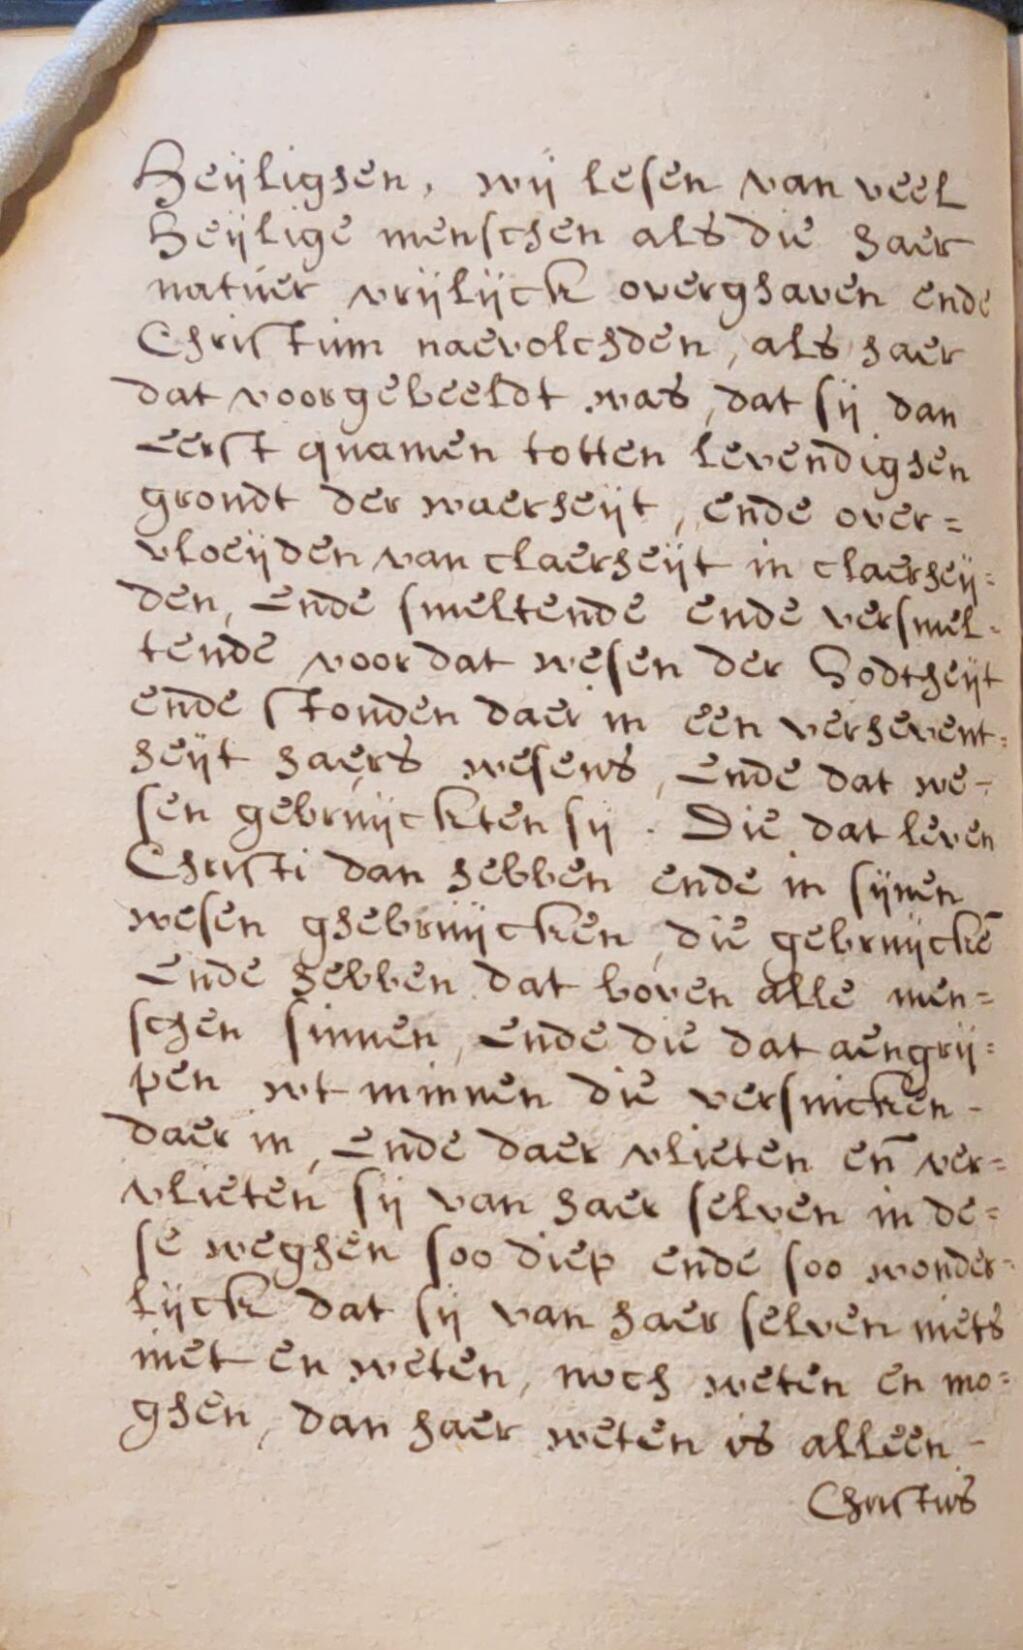 Heÿlighen, wÿ lesen van veel
heÿlige menschen als die haer
natuer vrÿlÿck overghaven ende
Christum naevolchden, als haer
dat voorgebeeldt was, dat sÿ dan
eerst quamen totten levendighen
grondt der waerheÿt, ende over=
vloeÿden van claerheÿt in claerheÿ=
den, ende smeltende ende versmel-
tende voor dat wesen der Godtheÿt
ende stonden daer in een verhevent=
heÿt haers wesens, ende dat we-
sen gebruÿckten sÿ. Die dat leven
Christi dan hebben ende in sÿnen
wesen ghebruÿcken, die gebruÿckē
ende hebben dat boven alle men=
schen sinnen, ende die dat aengrÿ=
pen wt minnen die versincken -
daer in, ende daer vlieten eñ ver=
vlieten sÿ van haer selven in de=
se weghen soo diep ende soo wonder=
lÿck dat sÿ van haer selven niets
niet en weten, noch weten en mo=
ghen, dan haer weten is alleen -
Christus